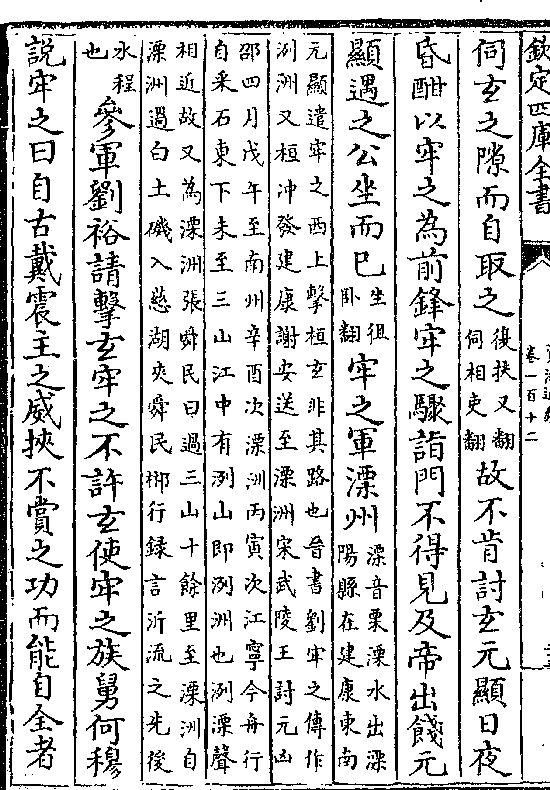 欽定四庫全書
卷一百十二
伺玄之隙而自取之
復扶又翻
伺相吏翻
故不肯討玄元顯日夜
昏酣以牢之為前鋒牢之驟詣門不得見及帝出餞元
顯遇之公坐而已
坐徂
卧翻
牢之軍溧州
溧音栗溧水出溧
陽縣在建康東南
元顯遣牢之西上擊桓玄非其路也晉書劉牢之傳作
洌洲又桓沖發建康謝安送至溧洲宋武陵王討元凶
邵四月戊午至南州辛酉次溧洲丙寅次江寧今舟行
自采石東下未至三山江中有洌山即洌洲也洌溧聲
相近故又為溧洲張舜民曰過三山十餘里至溧洲自
溧洲過白土磯入慈湖夾舜民郴行録言沂流之先後
水程
也
參軍劉裕請擊玄牢之不許玄使牢之族舅何穆
說牢之曰自古戴震主之威挾不賞之功而能自全者